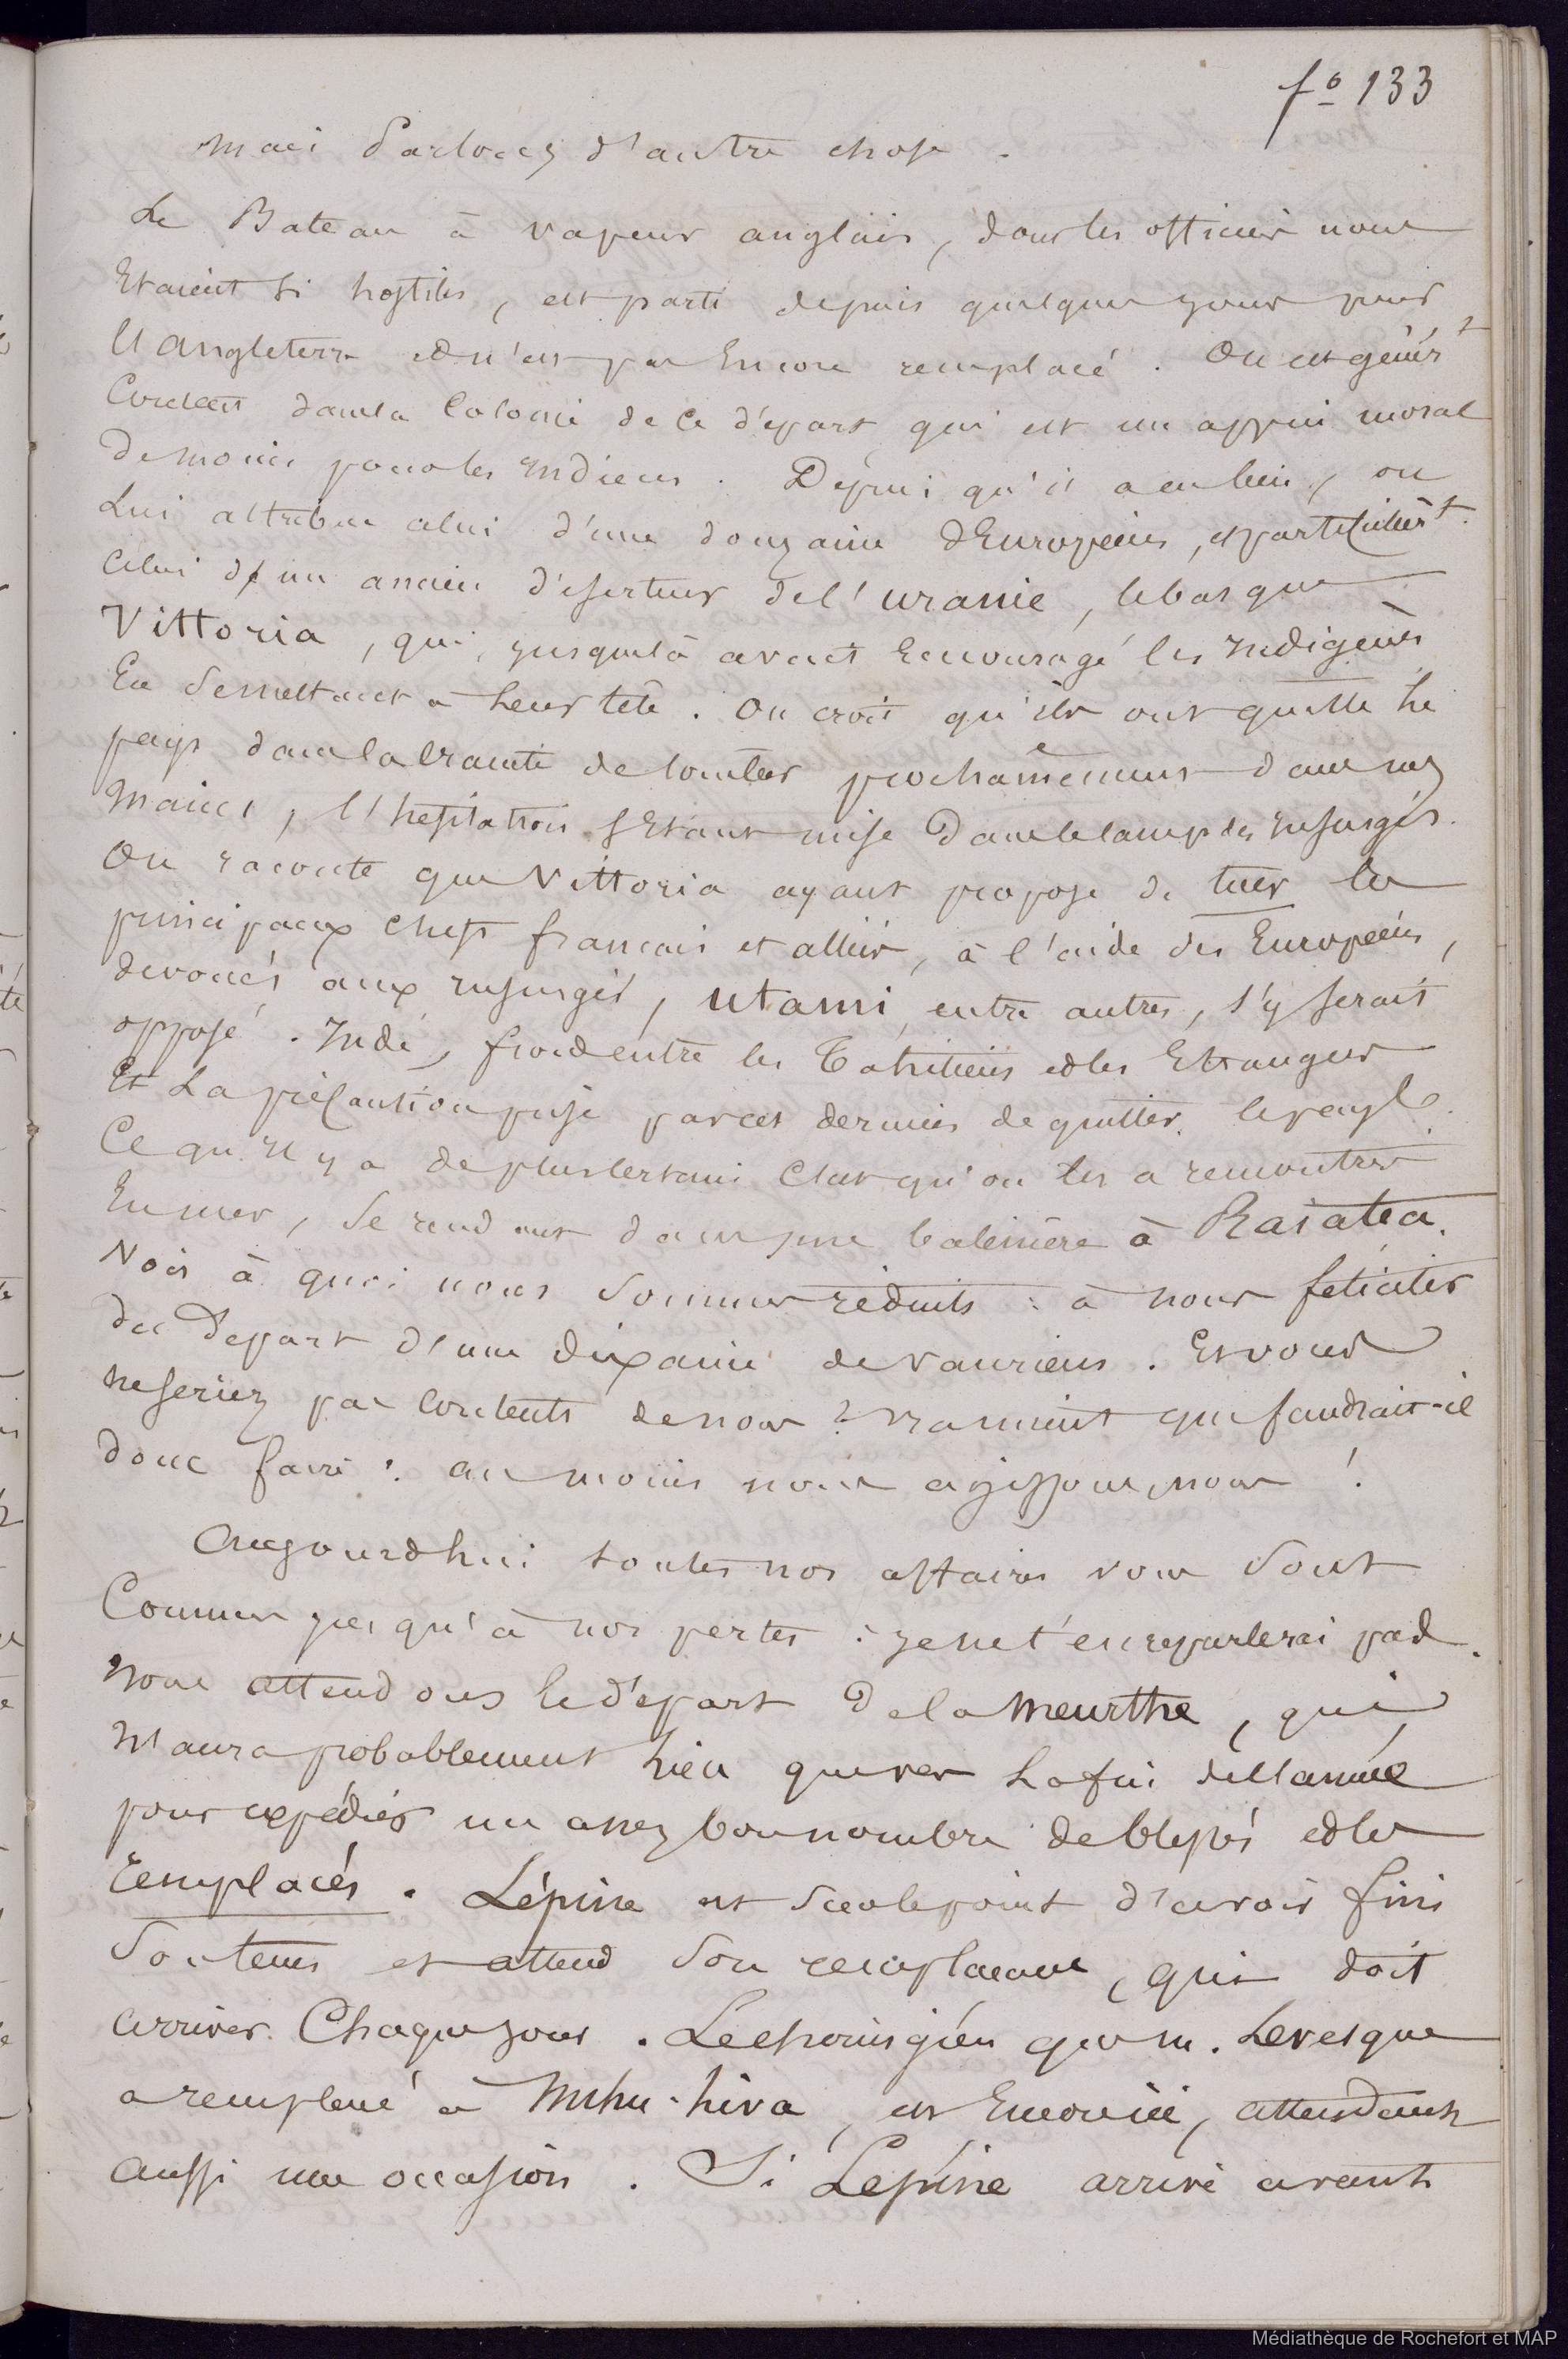 fo 133
Mais Parlons d'autre chose.
Le Bateau à vapeur anglais, dont les officiers nous
Etaient si hostiles, est parti depuis quelques jours pour
l'Angleterre et n'est pas Encore remplacé. On est génért
Content dans la Colonie de ce départ qui est un appui moral
De moins pour les Indiens. Depuis qu'il a eu lieu, on
Lui attribue celui d'une douzaine d'Européens, et particulièrt.
Celui d'un ancien déserteur de l'Uranie, le basque
Vittoria, qui, jusque là avait Encouragé les Indigènes
En Se mettant à Leur tête. On croit qu'ils ont quitté Le
pays dans la crainte de tomber prochainement dans nos
Mains, l'hésitation s'Etant mise Dans le camp des Insurgés.
On raconte que Vittoria ayant proposé de tuer les
principaux Chefs francais et alliés, à l'aide des Européens,
dévoués aux Insurgés, Utami, entre autres, s'y serait
opposé. Indè, froid entre les Tahitiens et les Etrangers
Et La précaution prise par ces derniers de quitter le pays.
Ce qu'Il y a de plus certain C'est qu'on les a rencontrés
En mer, Se rendant dans une baleinière à Raiatea.
Voir à quoi nous Sommes réduits : à nous féliciter
du Départ d'une dixaine de vauriens. Et vous
ne seriez pas Contents de nous ? Vraiment que faudrait-il
donc faire ? au moins nous agissons, nous !
Aujourd'hui toutes nos affaires vous Sont
Connues jusqu'à nos pertes : je ne t'en reparlerai pas.
Nous attendons Le départ De la Meurthe, qui
N'aura probablement Lieu que vers La fin de l'année
pour expédier un assez bon nombre de blessés et les
remplacés. Lépine est Sur le point d'avoir fini
Son tems et attend Son remplaçant, qui doit
arriver Chaque jour. Le chirurgien que M. Levesque
a remplacé à Nuhu-hiva, est Encore ici, attendant
aussi une occasion. Si Lépine arrive avant
Médiathèque de Rochefort et MAP